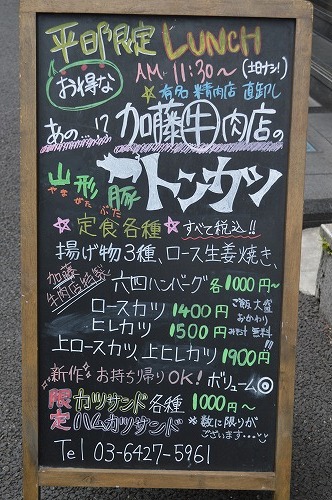 平日限定 LUNCH
お得な
AM 11:30～(土日ナシ!)
☆有名精肉店直卸し
あの..!?加藤牛肉店の
山形豚トンカツ
やまがたぶた
☆定食各種☆すべて税込!!
揚げ物3種、ロース生姜焼き、
加藤牛肉店特製
六四ハンバーグ各1000円～
ロースカツ 1400円
ヒレカツ 1500円
ご飯大盛
おかわり
みそ汁 無料!!
上ロースカツ、上ヒレカツ 1900円
新作♪お持ち帰りOK! ボリューム◎
限定 カツサンド各種 1000円～
ハムカツサンド ※数に限りが
ございます…
Tel 03-6427-5961